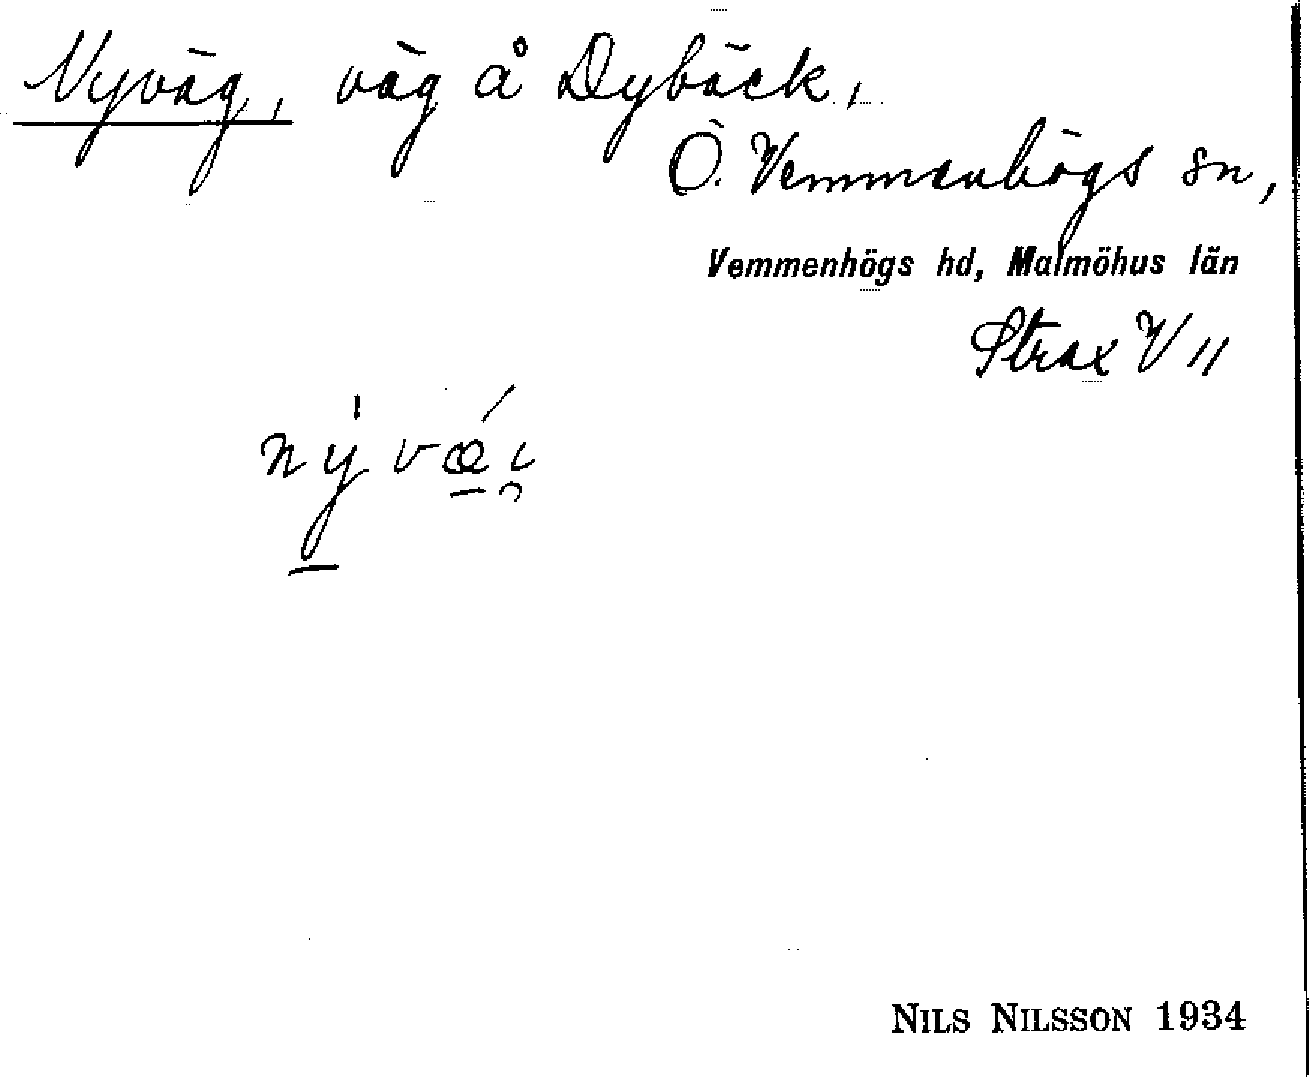 Nyväg, väg å Dybäck,
Ö. Vemmenhögs sn,
Vemmenhögs hd, Malmöhus län
Strax V //
nývǽi̯
NILS NILSSON 1934